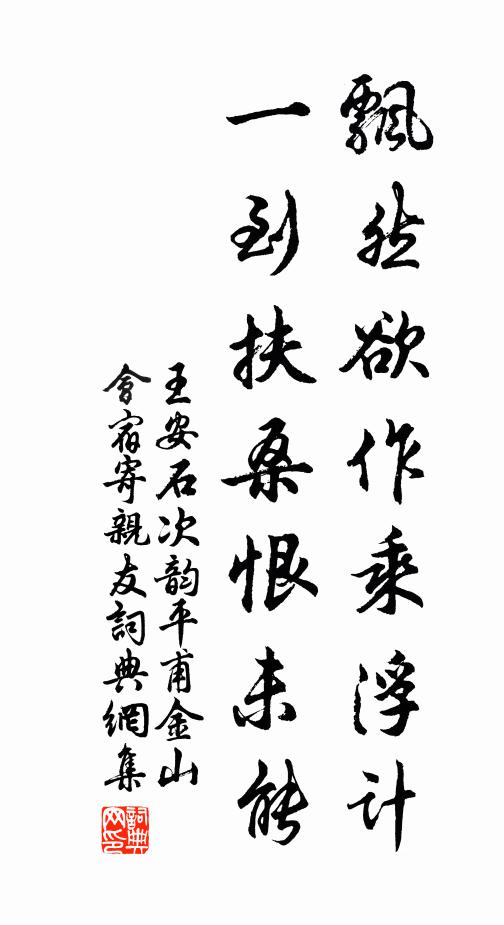 飄然欲作乘浮计
一到扶桑恨未能
王安石次韵平甫金山
會宿寄親友詞典網集
詞典
网印